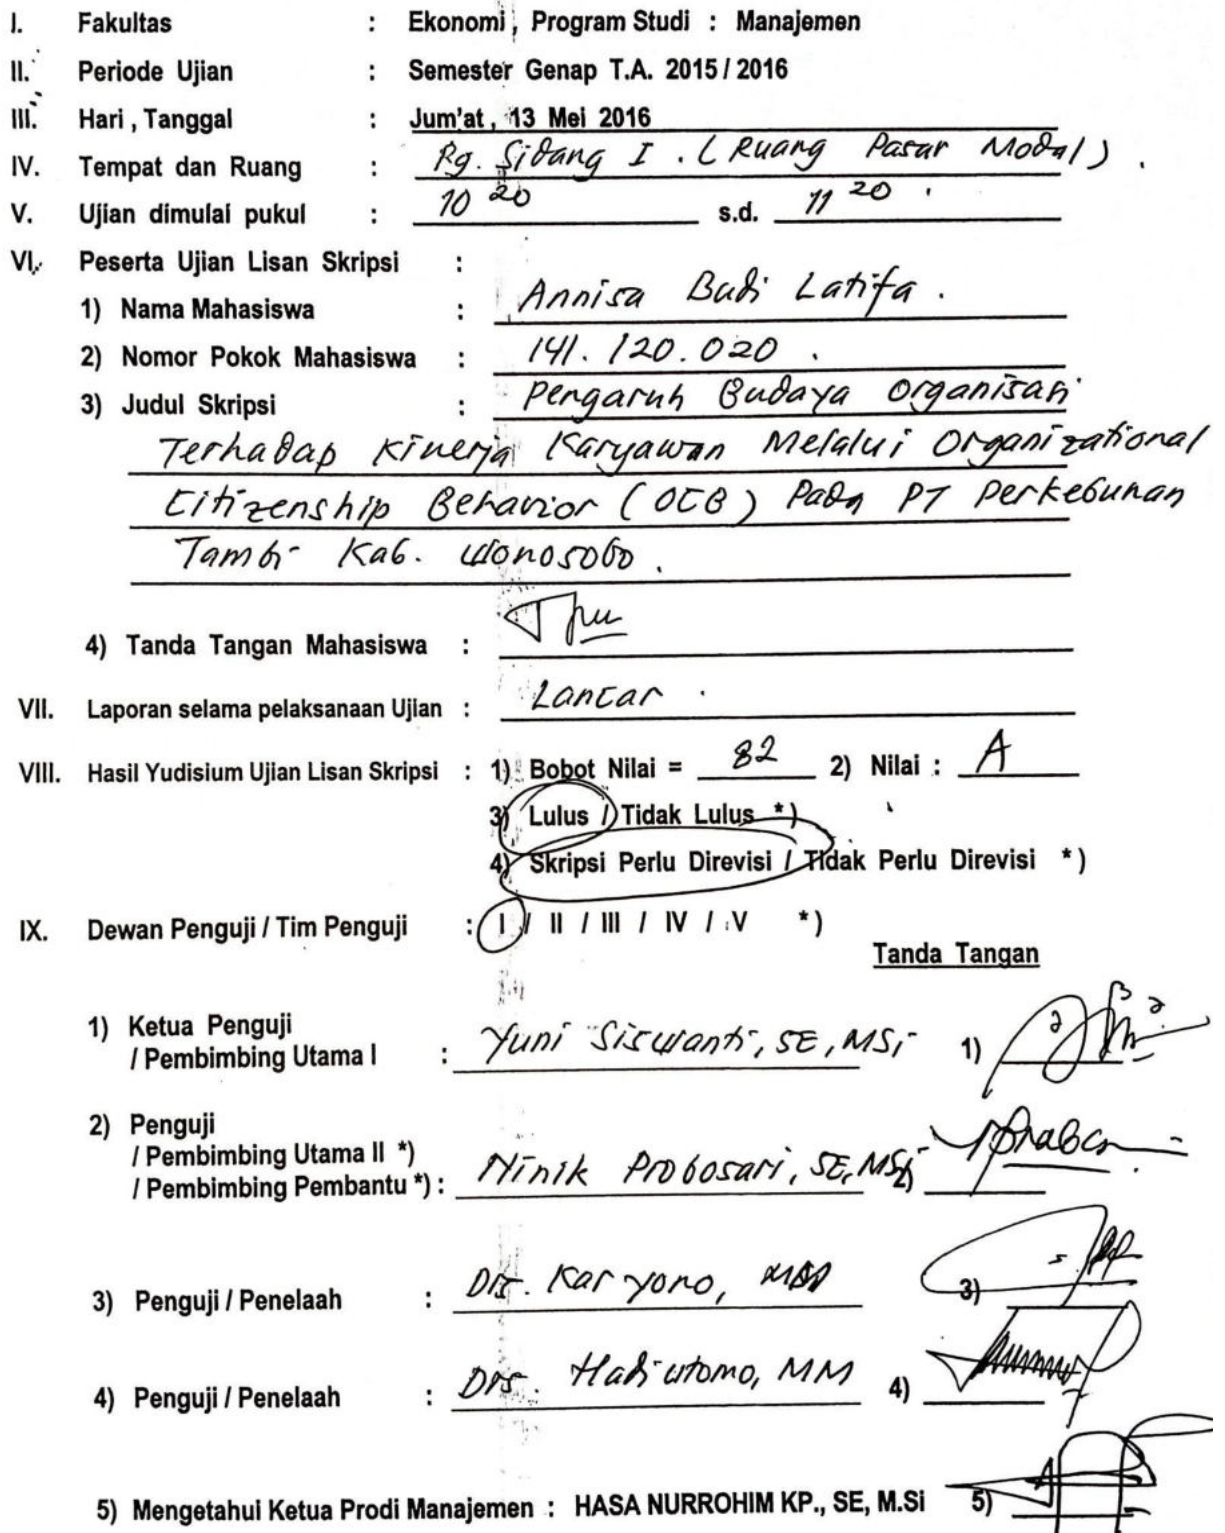 I. Fakultas : Ekonomi, Program Studi : Manajemen
II. Periode Ujian : Semester Genap T.A. 2015 / 2016
III. Hari , Tanggal : Jum'at , 13 Mei 2016
IV. Tempat dan Ruang : Rg. Sidang I . ( Ruang Pasar Modal ) .
V. Ujian dimulai pukul : 10 20 s.d. 11 20 .
VI. Peserta Ujian Lisan Skripsi :
1) Nama Mahasiswa : Annisa Budi Latifa .
2) Nomor Pokok Mahasiswa : 141. 120. 020 .
3) Judul Skripsi : Pengaruh Budaya Organisasi
Terhadap Kinerja Karyawan Melalui Organizational
Citizenship Behavior ( OCB ) Pada PT Perkebunan
Tambi Kab. Wonosobo .
4) Tanda Tangan Mahasiswa :
VII. Laporan selama pelaksanaan Ujian : Lancar .
VIII. Hasil Yudisium Ujian Lisan Skripsi : 1) Bobot Nilai = 82 2) Nilai : A
3) Lulus / Tidak Lulus *)
4) Skripsi Perlu Direvisi / Tidak Perlu Direvisi *)
IX. Dewan Penguji / Tim Penguji : I / II / III / IV / V *)
Tanda Tangan
1) Ketua Penguji
/ Pembimbing Utama I : Yuni Siswanti, SE, MSi 1)
2) Penguji
/ Pembimbing Utama II *)
/ Pembimbing Pembantu *) : Ninik Probosari, SE, MSi 2)
3) Penguji / Penelaah : Drs. Karyono, 3)
4) Penguji / Penelaah : Drs. Hadi utomo, MM 4)
5) Mengetahui Ketua Prodi Manajemen : HASA NURROHIM KP., SE, M.Si 5)